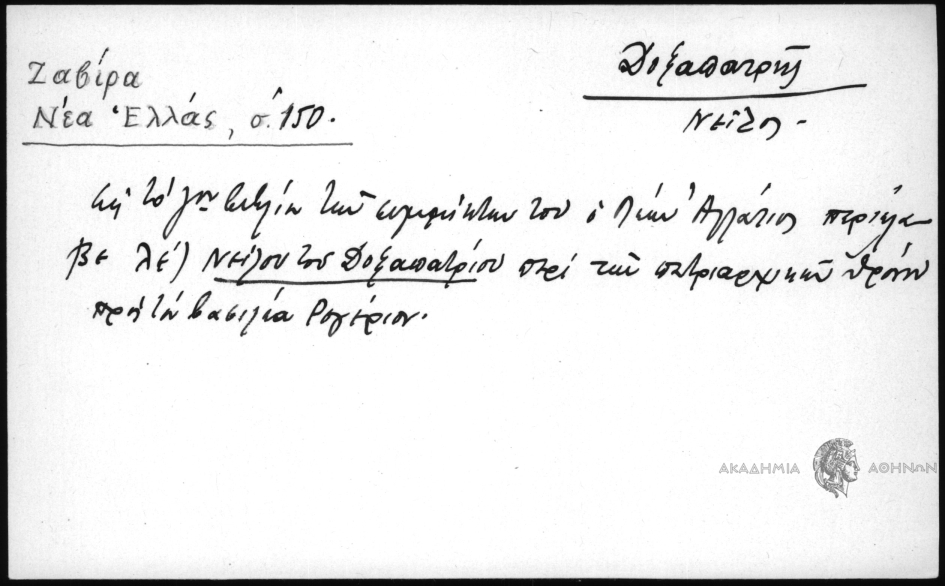 Ζαβίρα
Νέα Ἑλλάς, σ. 150.
Δοξαπατρῆς
Νεῖλος.
Εἰς τὸ βιβλίον τῶν συμμίκτων του ὁ Λέων Ἀλλάτιος περιέλα-
βε λέ) Νείλου του Δοξαπατρίου περί τῶν πατριαρχικῶν θρόνων
πρὸς τὸν βασιλέα Ρογέριον.
ΑΚΑΔΗΜΙΑ ΑΘΗΝΩΝ